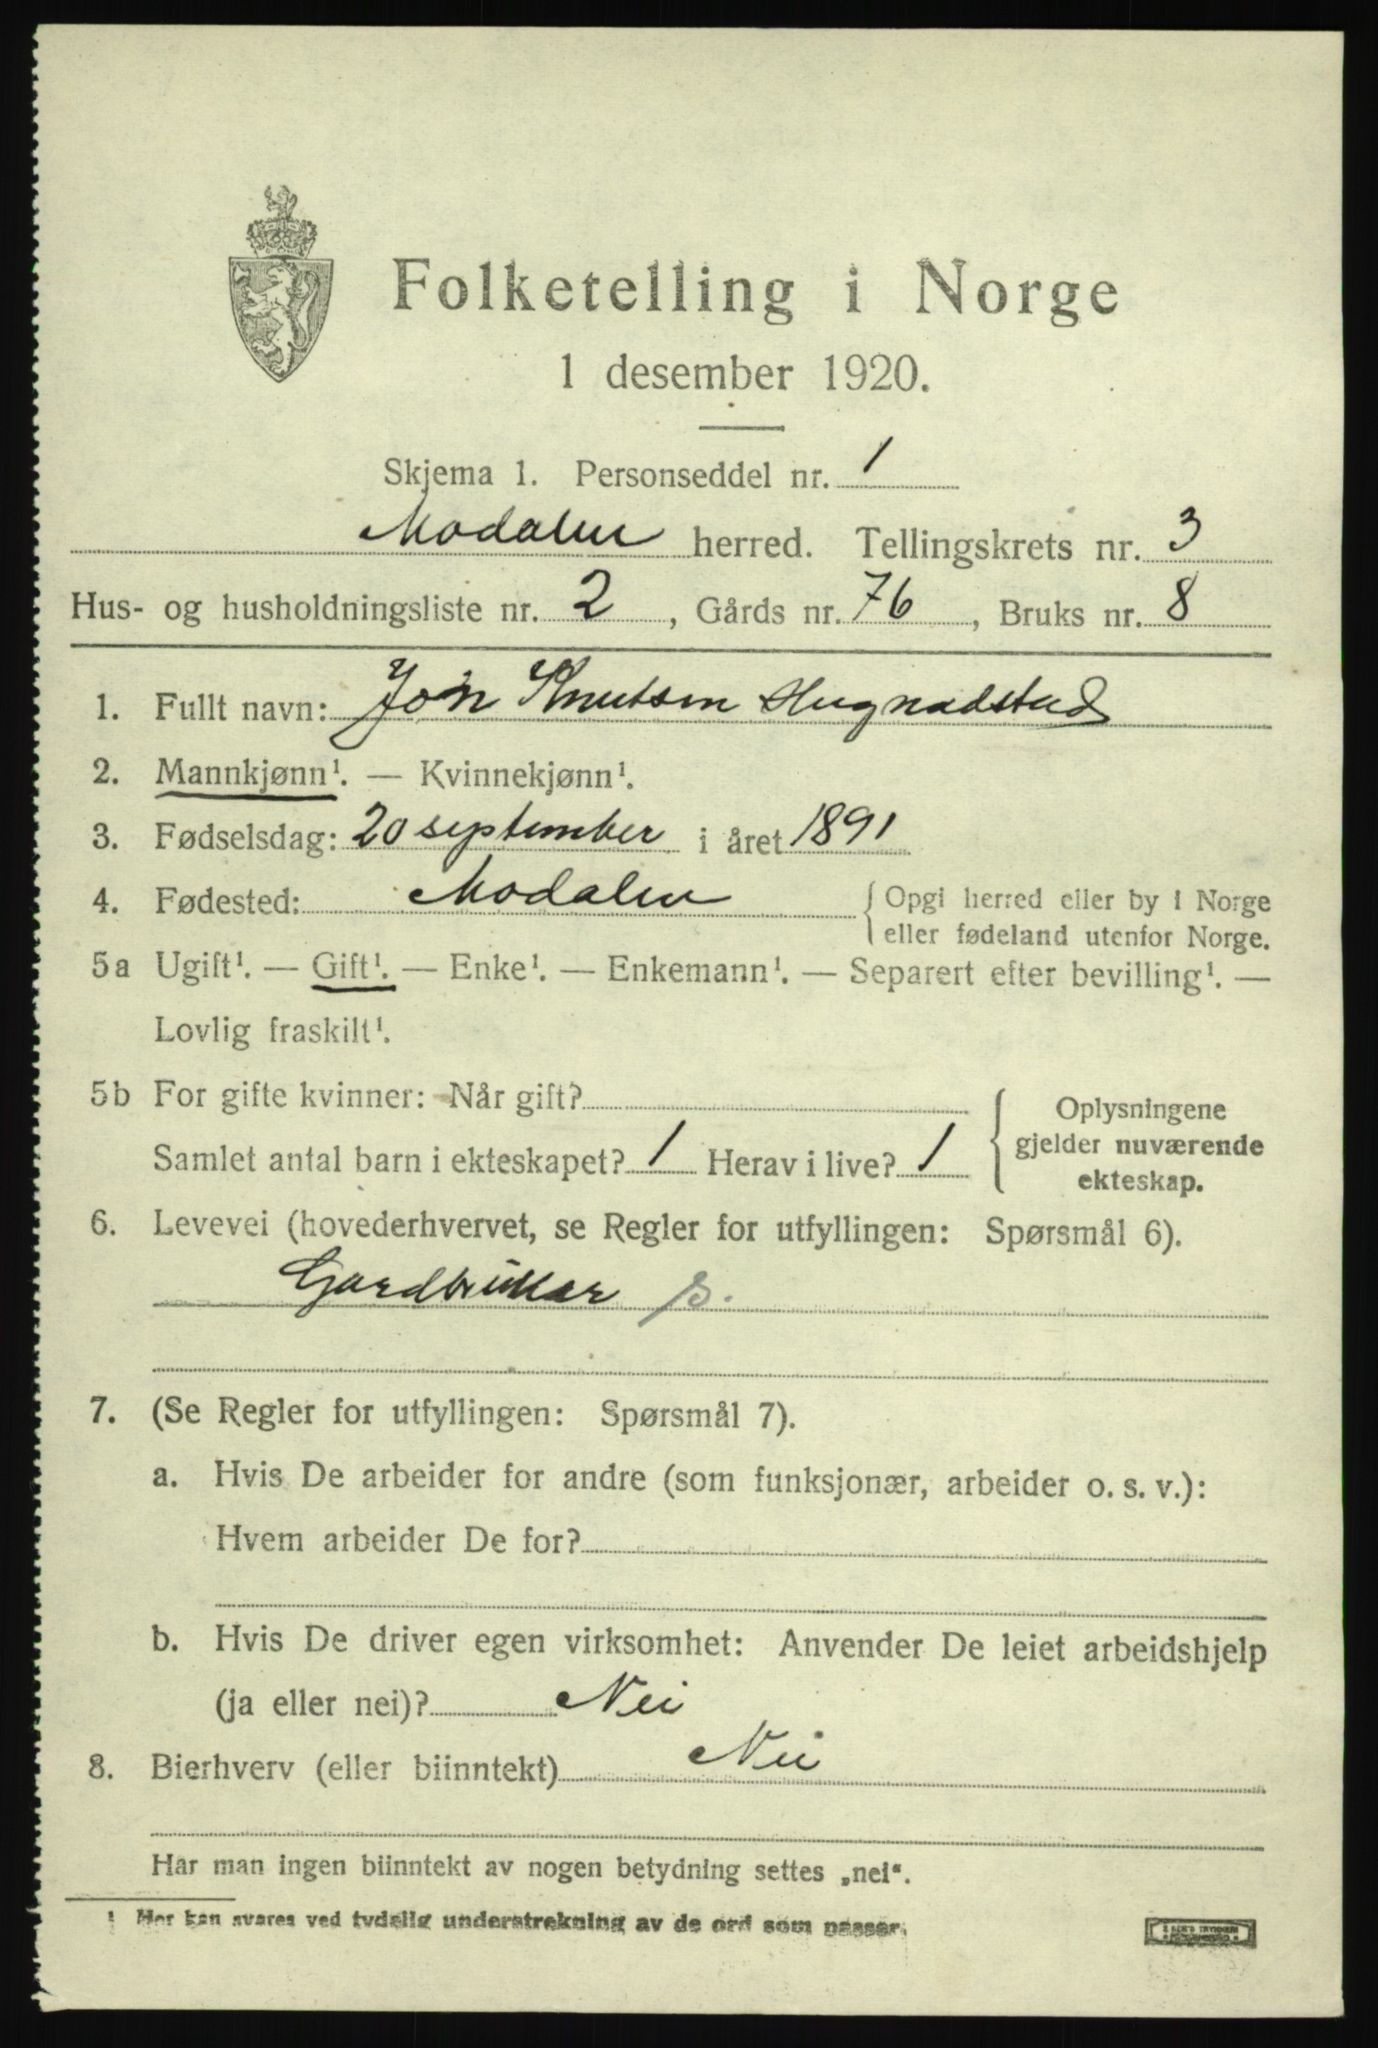 Folketelling i Norge
1 desember 1920.
Skjema 1. Personseddel nr. 1
Modalen herred. Tellingskrets nr. 3
Hus- og husholdningsliste nr. 2, Gårds nr. 76, Bruks nr. 8
1. Fullt navn: Jon Knutsen Hugnadstad
2. Mannkjønn¹. — Kvinnekjønn¹.
3. Fødselsdag: 20 september i året 1891
4. Fødested: Modalen { Opgi herred eller by i Norge
eller fødeland utenfor Norge.
5a Ugift¹. — Gift¹. — Enke¹. — Enkemann¹. — Separert efter bevilling¹. —
Lovlig fraskilt¹.
5b For gifte kvinner: Når gift?
Samlet antal barn i ekteskapet? 1 Herav i live? 1
{ Oplysningene
gjelder nuværende
ekteskap.
6. Levevei (hovederhvervet, se Regler for utfyllingen: Spørsmål 6).
Gardbrukar S.
7. (Se Regler for utfyllingen: Spørsmål 7).
a. Hvis De arbeider for andre (som funksjonær, arbeider o. s. v.):
Hvem arbeider De for?
b. Hvis De driver egen virksomhet: Anvender De leiet arbeidshjelp
(ja eller nei)? Nei
8. Bierhverv (eller biinntekt) Nei
Har man ingen biinntekt av nogen betydning settes „nei“.
¹ Her kan svares ved tydelig understrekning av de ord som passer.